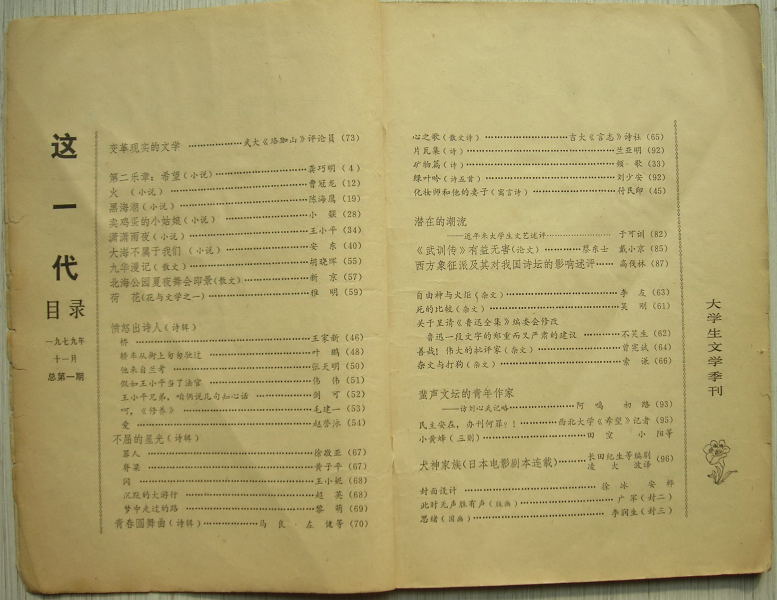 这
一
代
目录
一九七九年
十一月
总第一期
变革现实的文学 ………………武大《珞珈山》评论员 (73)
第二乐章：希望(小说) ………………龚巧明 ( 4 )
火 (小说) ………………曹冠龙 (12)
黑海潮(小说) ………………陈海鹰 (19)
卖鸡蛋的小姑娘(小说) ………………小 颂 (28)
潇潇雨夜(小说) ………………王小平 (34)
大海不属于我们 (小说) ………………安 东 (40)
九华漫记(散文) ………………胡晓晖 (55)
北海公园夏夜舞会即景(散文) ………………新 京 (57)
荷 花(花与文学之一) ………………雅 明 (59)
愤怒出诗人(诗辑)
桥 ………………王家新 (46)
轿车从街上匆匆驶过 ………………叶 鹏 (48)
他来自兰考 ………………张天明 (50)
假如王小平当了法官 ………………伟 伟 (51)
王小平兄弟，咱俩说几句知心话 ………………剑 可 (52)
呵，《修养》 ………………毛建一 (53)
爱 ………………赵誉泳 (54)
不屈的星光(诗辑)
罪人 ………………徐敬亚 (67)
脊梁 ………………黄子平 (67)
闪 ………………王小妮 (68)
沉默的大游行 ………………超 英 (68)
梦中走过的路 ………………黎 萌 (69)
青春圆舞曲(诗辑) ………………马 良·左 健等 (70)
心之歌(散文诗) ………………吉大《言志》诗社 (65)
片瓦集(诗) ………………兰亚明 (92)
矿物篇(诗) ………………颂·歌 (33)
绿叶吟(诗五首) ………………刘少安 (92)
化妆师和他的妻子(寓言诗) ………………付民印 (45)
潜在的潮流
——近年来大学生文艺述评 ………………于可训 (82)
《武训传》有益无害(论文) ………………蔡东士 戴小京 (85)
西方象征派及其对我国诗坛的影响述评 ……高伐林 (87)
自由神与火炬(杂文) ………………李 友 (63)
死的比较(杂文) ………………吴 刚 (61)
关于呈请《鲁迅全集》编委会修改
鲁迅一段文字的郑重而又严肃的建议 ……不笑生 (62)
善哉！伟大的批评家(杂文) ………………曾宪斌 (64)
杂文与打狗(杂文) ………………索 谦 (66)
蜚声文坛的青年作家
——访刘心武记略 ………………阿 鸣 初 路 (93)
民主安在，办刊何罪？！ ……西北大学《希望》记者 (95)
小黄蜂(三则) ………………田 空 小 阳等
犬神家族(日本电影剧本连载) ……长田纪生等编剧
凌 大 波译 (96)
封面设计 ………………徐 冰 安 桦
此时无声胜有声(版画) ………………广 军(封二)
思绪(国画) ………………李润生(封三)
大学生文学季刊